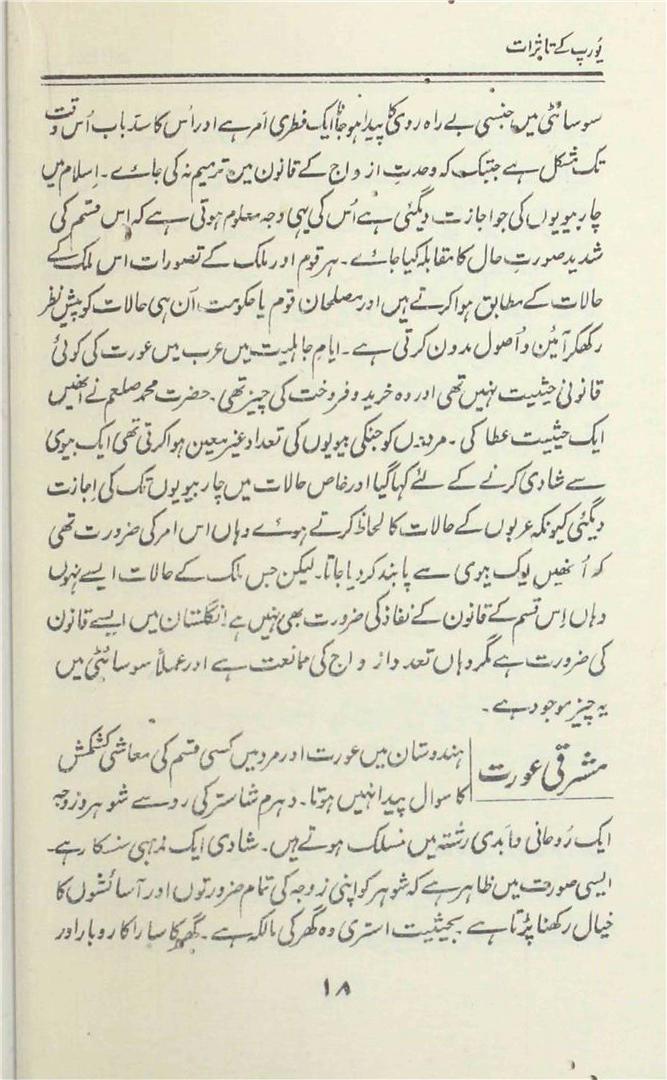 یُورپ کے تاثرات
سوسائٹی میں جنسی بے راہ روی کا پیدا ہو جانا ایک فطری امر ہے اور اُس کا سدّ باب اُس وقت
تک مشکل ہے جبتک کہ وحدتِ ازدواج کے قانون میں ترمیم نہ کی جائے۔ اِسلام میں
چار بیویوں کی جو اجازت دیگئی ہے اُس کی یہی وجہ معلوم ہوتی ہے کہ اس قسم کی
شدید صورتِ حال کا مقابلہ کیا جائے۔ ہر قوم اور ملک کے تصورات اس ملک کے
حالات کے مطابق ہوا کرتے ہیں اور مصلحانِ قوم یا حکومت اُن ہی حالات کو پیشِ نظر
رکھکر آئین و اُصول مدون کرتی ہے۔ ایامِ جاہلیت میں عرب میں عورت کی کوئی
قانونی حیثیت نہیں تھی اور وہ خرید و فروخت کی چیز تھی۔ حضرت محمد صلعم نے اُنھیں
ایک حیثیت عطا کی۔ مردوں کو جنکی بیویوں کی تعداد غیر معین ہوا کرتی تھی ایک بیوی
سے شادی کرنے کے لئے کہا گیا اور خاص حالات میں چار بیویوں تک کی اِجازت
دیگئی کیونکہ عربوں کے حالات کا لحاظ کرتے ہوئے وہاں اس امر کی ضرورت تھی
کہ اُنھیں یوک بیوی سے پابند کر دیا جاتا۔ لیکن جس ملک کے حالات ایسے نہوں
وہاں اِس قسم کے قانون کے نفاذ کی ضرورت بھی نہیں ہے اِنگلستان میں ایسے قانون
کی ضرورت ہے مگر وہاں تعدد ازدواج کی ممانعت ہے اور عملاً سوسائٹی میں
یہ چیز موجود ہے۔
مشرقی عورت
ہندوستان میں عورت اور مرد میں کسی قسم کی معاشی کشمکش
کا سوال پیدا نہیں ہوتا۔ دہرم شاستر کی رو سے شوہر و زوجہ
ایک رُوحانی و ابدی رشتہ میں منسلک ہوتے ہیں۔ شادی ایک مذہبی سنسکار ہے۔
ایسی صورت میں ظاہر ہے کہ شوہر کو اپنی زوجہ کی تمام ضرورتوں اور آسائشوں کا
خیال رکھنا پڑتا ہے۔ بحیثیت استری وہ گھر کی مالکہ ہے۔ گھر کا سارا کاروبار اور
۱۸